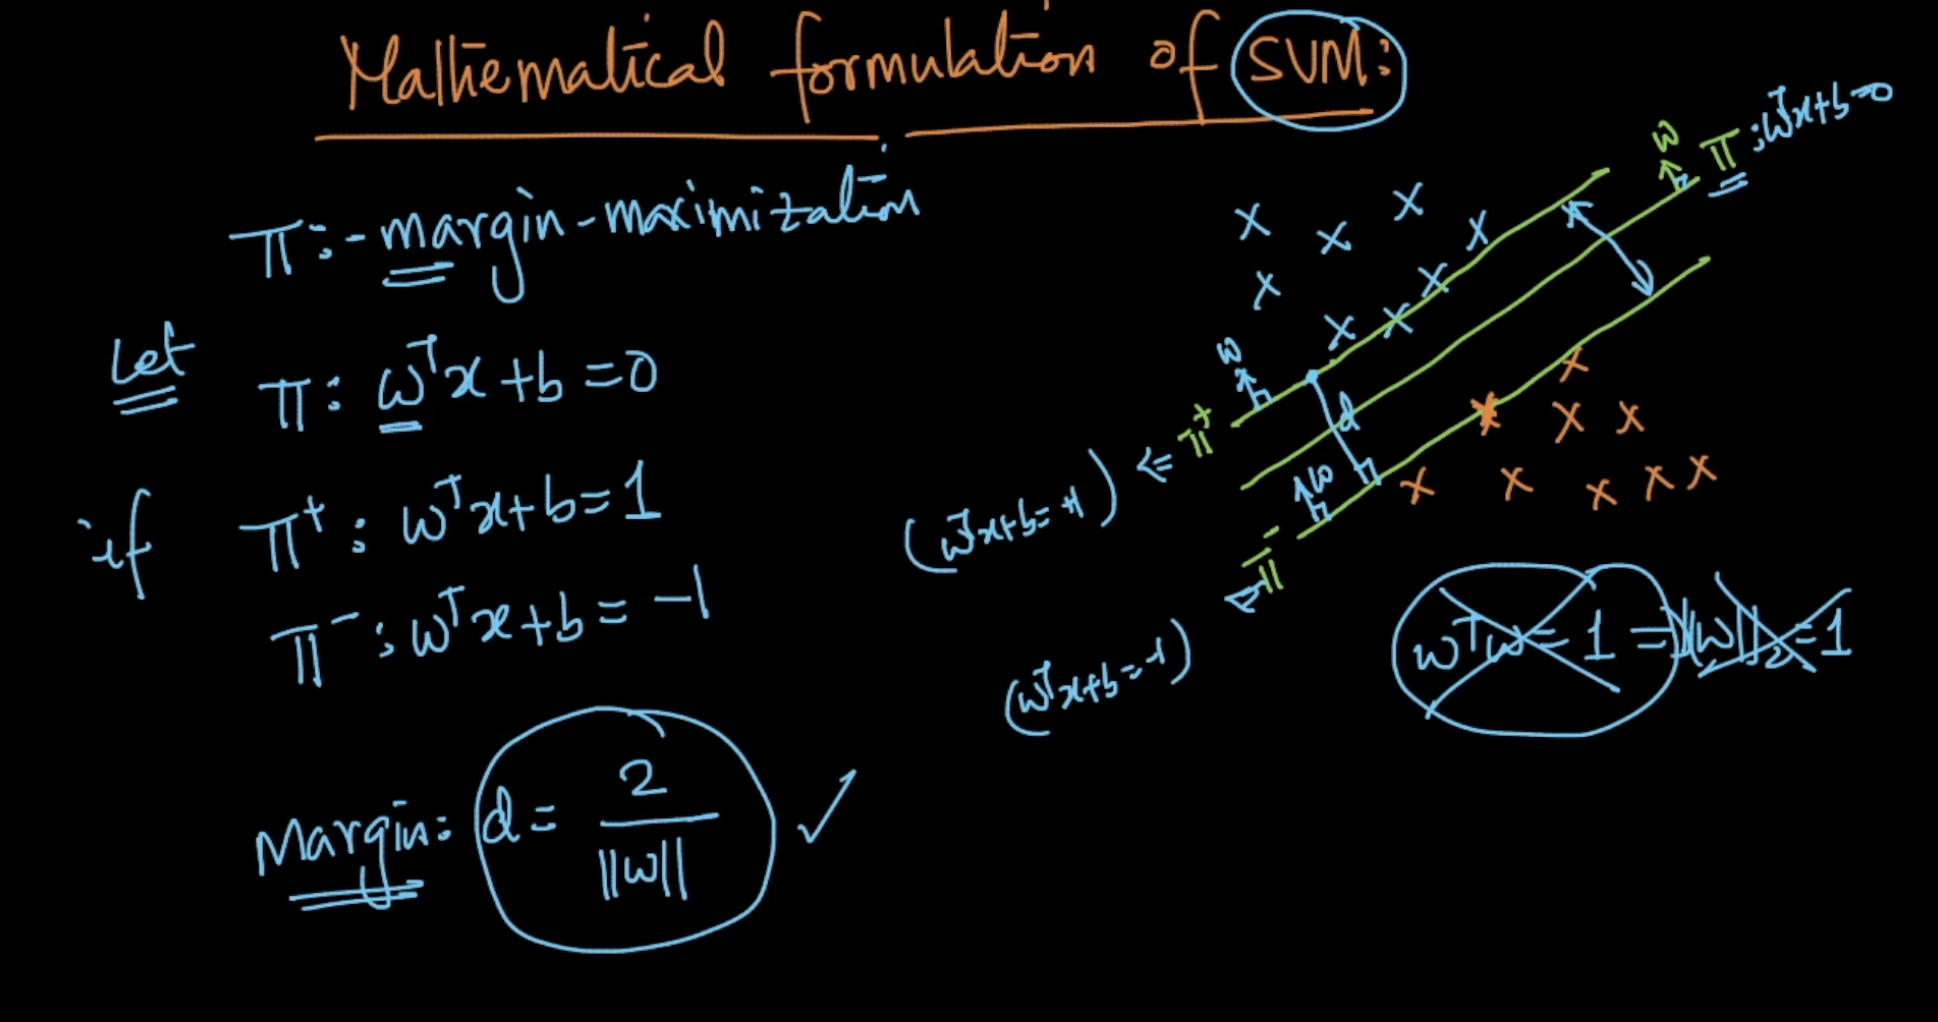 Mathematical formulation of SVM:
π:- margin-maximization
Let π: wᵀx+b=0
if π⁺: wᵀx+b=1
π⁻: wᵀx+b=-1
Margin: d= 2/||w|| ✓
w π: wᵀx+b=0
w
d
π⁺
(wᵀx+b=+1) <=
w
π⁻
(wᵀx+b=-1)
wᵀw=1 = ||w||₂=1